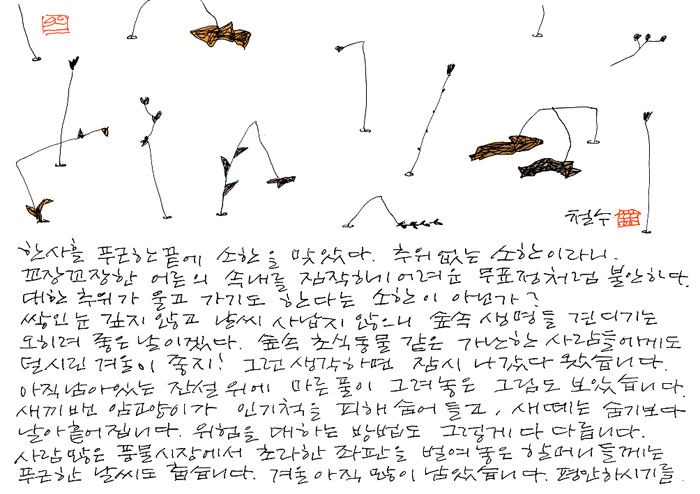 철수
한사흘 푸근한끝에 소한을 맞았다. 추위없는 소한이라니.
꼬장꼬장한 어른의 속내를 짐작하기어려운 무표정처럼 불안하다.
대한 추위가 울고 가기도 한다는 소한이 아닌가?
쌓인눈 깊지 않고 날씨 사납지 않으니 숲속 생명들 견디기는
오히려 좋은날이겠다. 숲속 초식동물 같은 가난한 사람들에게도
덜시린 겨울이 좋지! 그런 생각하면 잠시 나갔다 왔습니다.
아직남아있는 잔설위에 마른풀이 그려놓은 그림도 보았습니다.
새끼밴 암고양이가 인기척을 피해 숨어들고, 새떼는 숨기보다
날아흩어집니다. 위험을 대하는 방법도 그렇게 다 다릅니다.
사람많은 풍물시장에서 초라한 좌판을 벌여놓은 할머니들께는
푸근한 날씨도 춥습니다. 겨울아직 많이 남았습니다. 평안하시기를.